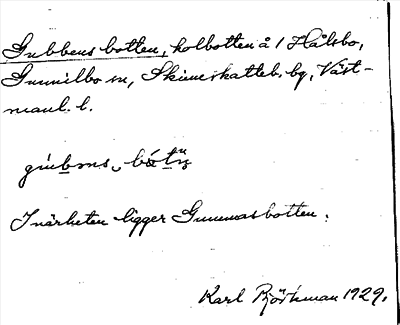 Gubbens botten, kolbotten å 1 Hålsbo,
Gunnilbo sn, Skinnskatteb. bg, Väst-
manl. l.
gubens bòtn
I närheten ligger Gummasbotten.
Karl Björkman 1929.